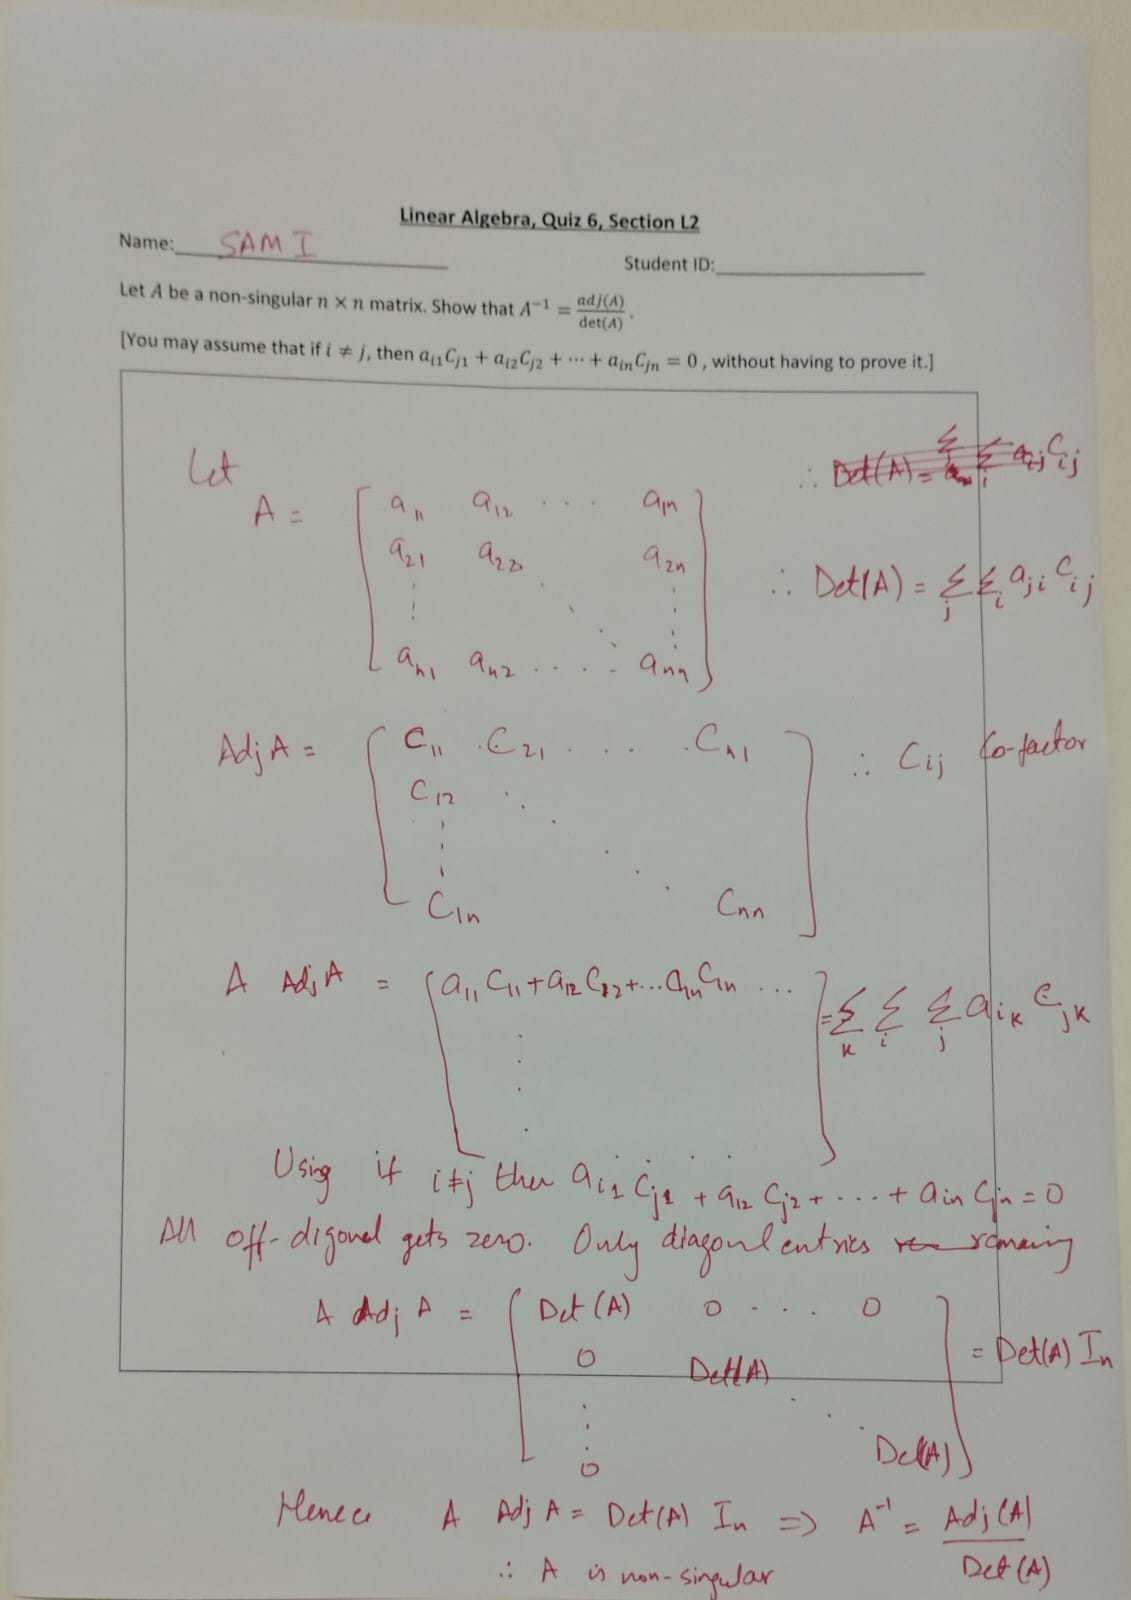 Linear Algebra, Quiz 6, Section L2
Name: SAMI
Student ID:
Let A be a non-singular n × n matrix. Show that A⁻¹ = adj(A)/det(A).
[You may assume that if i ≠ j, then aᵢ₁Cⱼ₁ + aᵢ₂Cⱼ₂ + ⋯ + aᵢₙCⱼₙ = 0, without having to prove it.]
Let
A = [ a₁₁ a₁₂ . . . a₁ₙ
a₂₁ a₂₂ a₂ₙ
⋮ ⋱ ⋮
aₙ₁ aₙ₂ . . . . aₙₙ ]
∴ Det(A) = Σⱼ Σᵢ aⱼᵢ Cᵢⱼ
Adj A = [ C₁₁ C₂₁ . . . Cₙ₁
C₁₂ ⋱
⋮
C₁ₙ Cₙₙ ]
∴ Cᵢⱼ Co-factor
A Adj A = [ a₁₁C₁₁ + a₁₂C₁₂ + ... a₁ₙC₁ₙ ... ] = Σₖ Σᵢ Σⱼ aᵢₖ Cⱼₖ
Using if i≠j then aᵢ₁ Cⱼ₁ + aᵢ₂ Cⱼ₂ + . . . + aᵢₙ Cⱼₙ = 0
All off-digonal gets zero. Only diagonal entries remaing
A Adj A = [ Det(A) 0 . . . 0
0 Det(A)
⋮ ⋱
0 Det(A) ] = Det(A) Iₙ
Hence A Adj A = Det(A) Iₙ ⇒ A⁻¹ = Adj(A)/Det(A)
∵ A is non-singular